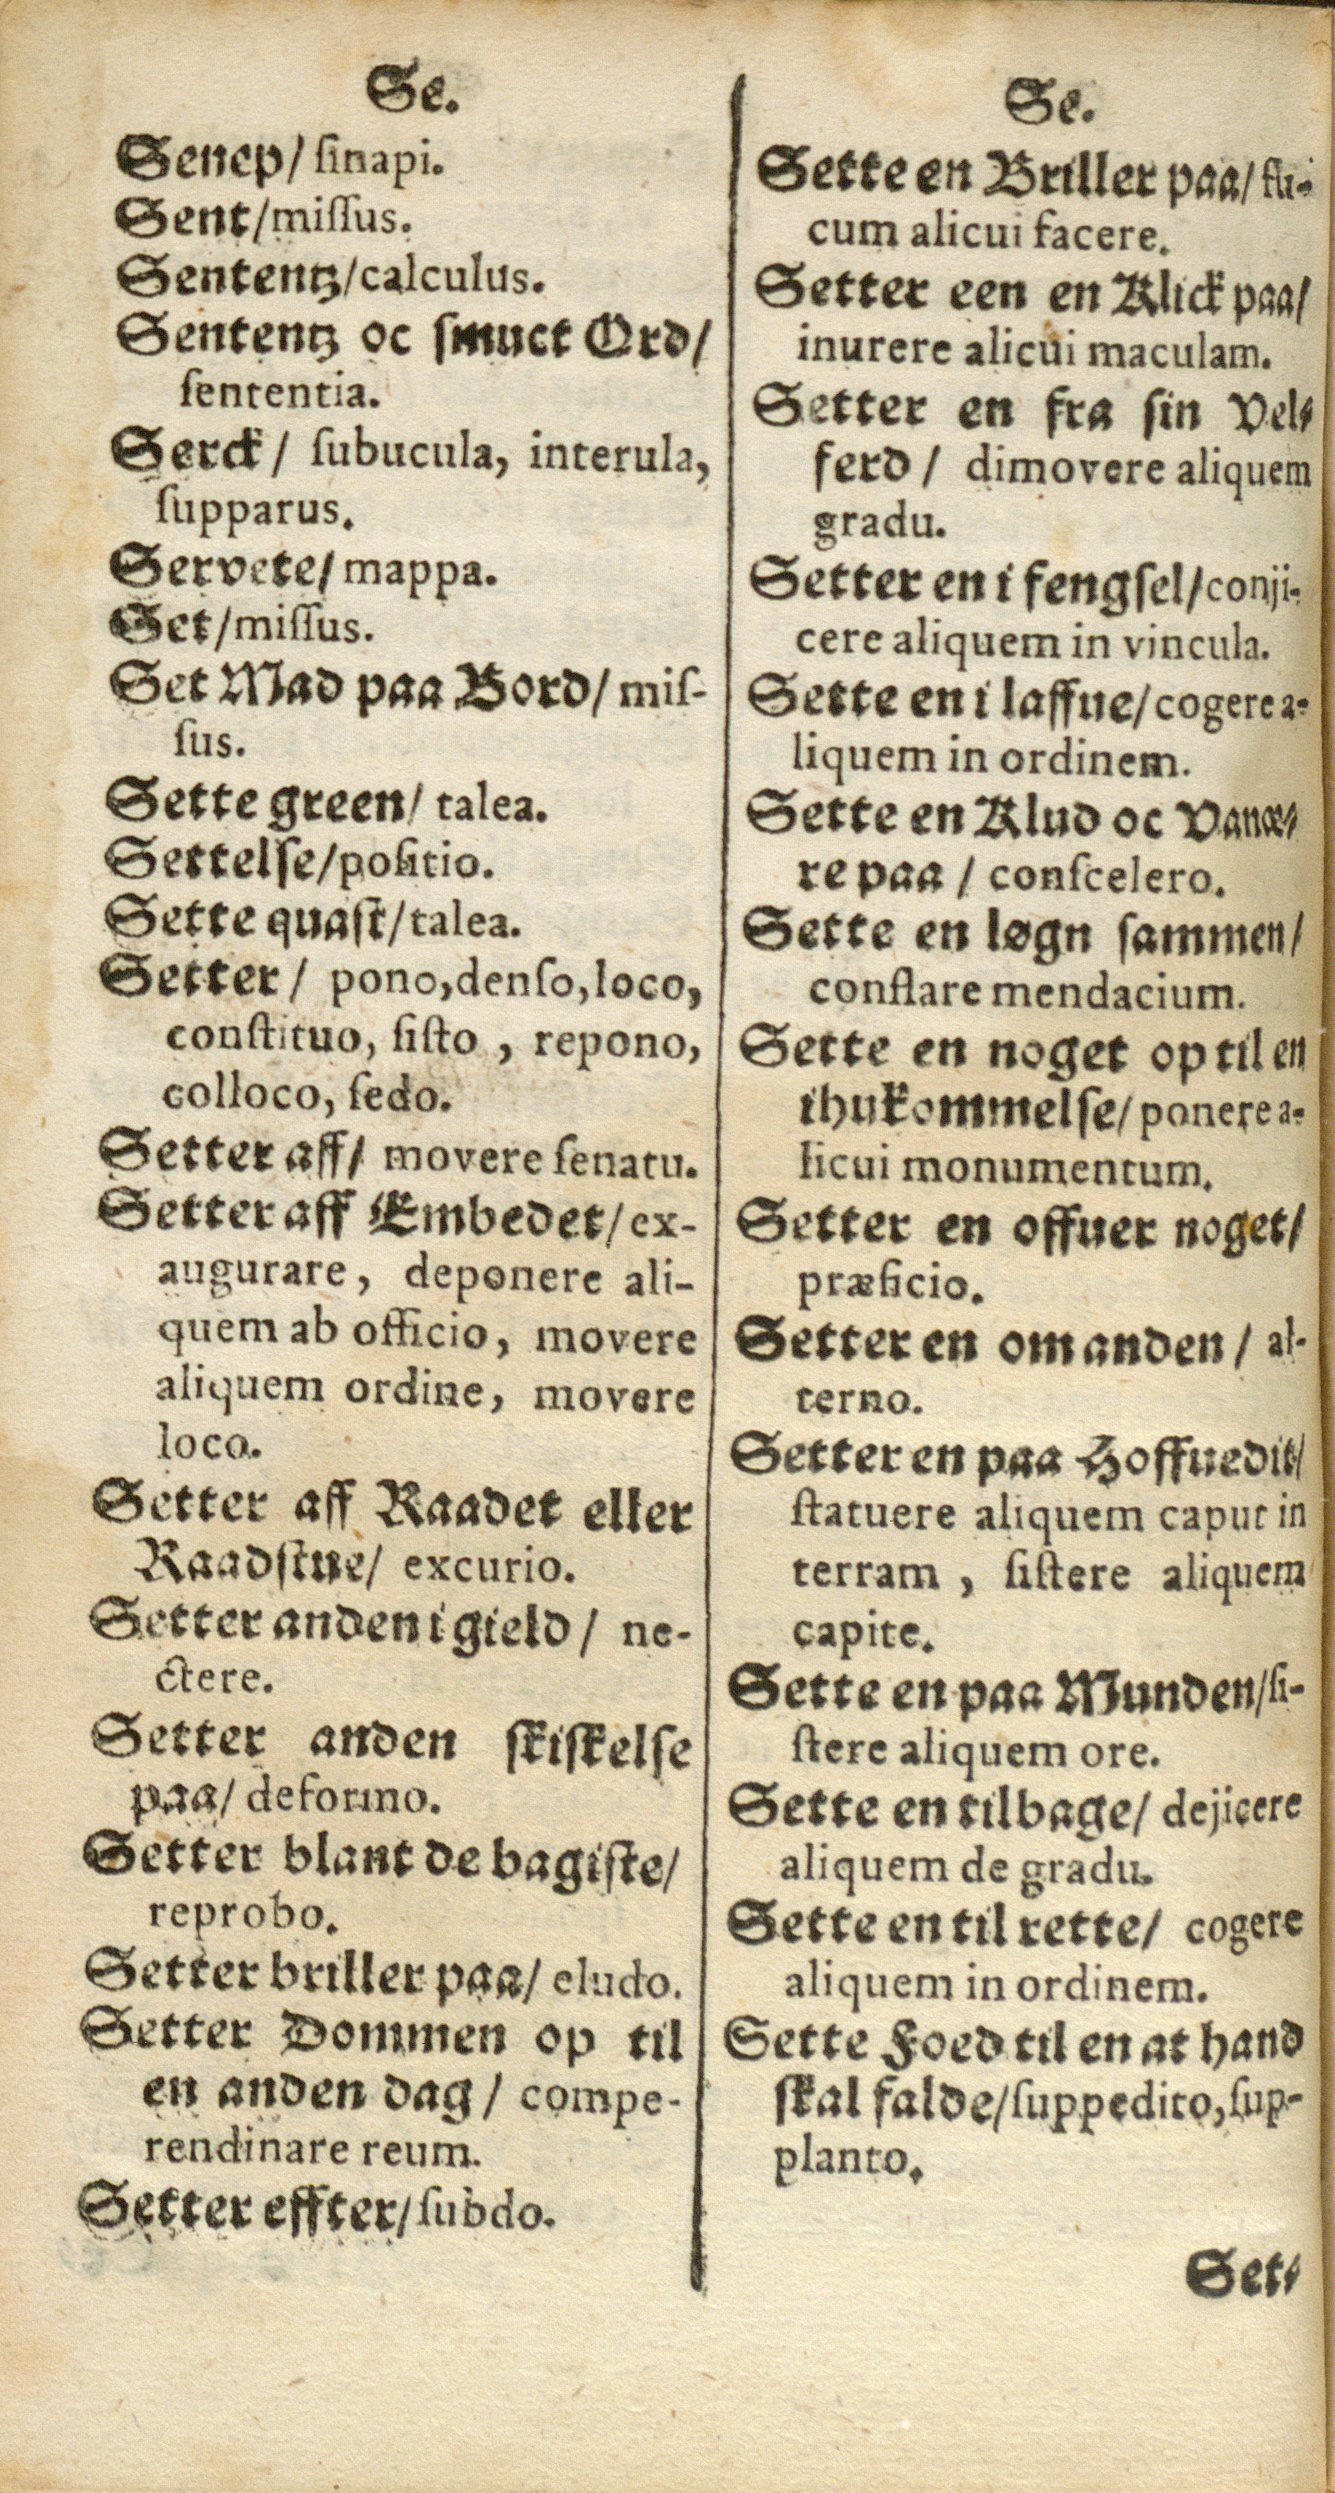 Se.
Senep/ ſinapi.
Sent/miſſus.
Sententꜩ/calculus.
Sententꜩ oc ſmuct Ord/
ſententia.
Serck/ ſubucula, interula,
ſupparus.
Servete/ mappa.
Set/miſſus.
Set Mad paa Bord/ miſ-
ſus.
Sette green/ talea.
Settelſe/poſitio.
Sette quaſt/talea.
Setter/ pono,denſo,loco,
conſtituo, ſiſto , repono,
colloco, ſedo.
Setter aff/ movere ſenatu.
Setter aff Embedet/ex-
augurare, deponere ali-
quem ab officio, movere
aliquem ordine, movere
loco.
Setter aff Raadet eller
Raadſtue/ excurio.
Setter anden i gield/ ne-
ctere.
Setter anden ſkiſkelſe
paa/ deformo.
Setter blant de bagiſte/
reprobo.
Setter briller paa/ eludo.
Setter Dommen op til
en anden dag/ compe-
rendinare reum.
Setter effter/ſubdo.
Se.
Sette en Briller paa/ fu-
cum alicui facere.
Setter een en Klick paa/
inurere alicui maculam.
Setter en fra ſin Vel-
ferd/ dimovere aliquem
gradu.
Setter en i fengſel/conji-
cere aliquem in vincula.
Sette en i laffue/cogere a-
liquem in ordinem.
Sette en Klud oc Vanæ-
re paa/ conſcelero.
Sette en løgn ſammen/
conflare mendacium.
Sette en noget op til en
ihukommelſe/ ponere a-
licui monumentum.
Setter en offuer noget/
præficio.
Setter en om anden/ al-
terno.
Setter en paa Hoffuedit/
ſtatuere aliquem caput in
terram , ſiſtere aliquem
capite.
Sette en paa Munden/ſi-
ſtere aliquem ore.
Sette en tilbage/ dejicere
aliquem de gradu.
Sette en til rette/ cogere
aliquem in ordinem.
Sette Foed til en at hand
ſkal falde/ſuppedito,ſup-
planto.
Set-